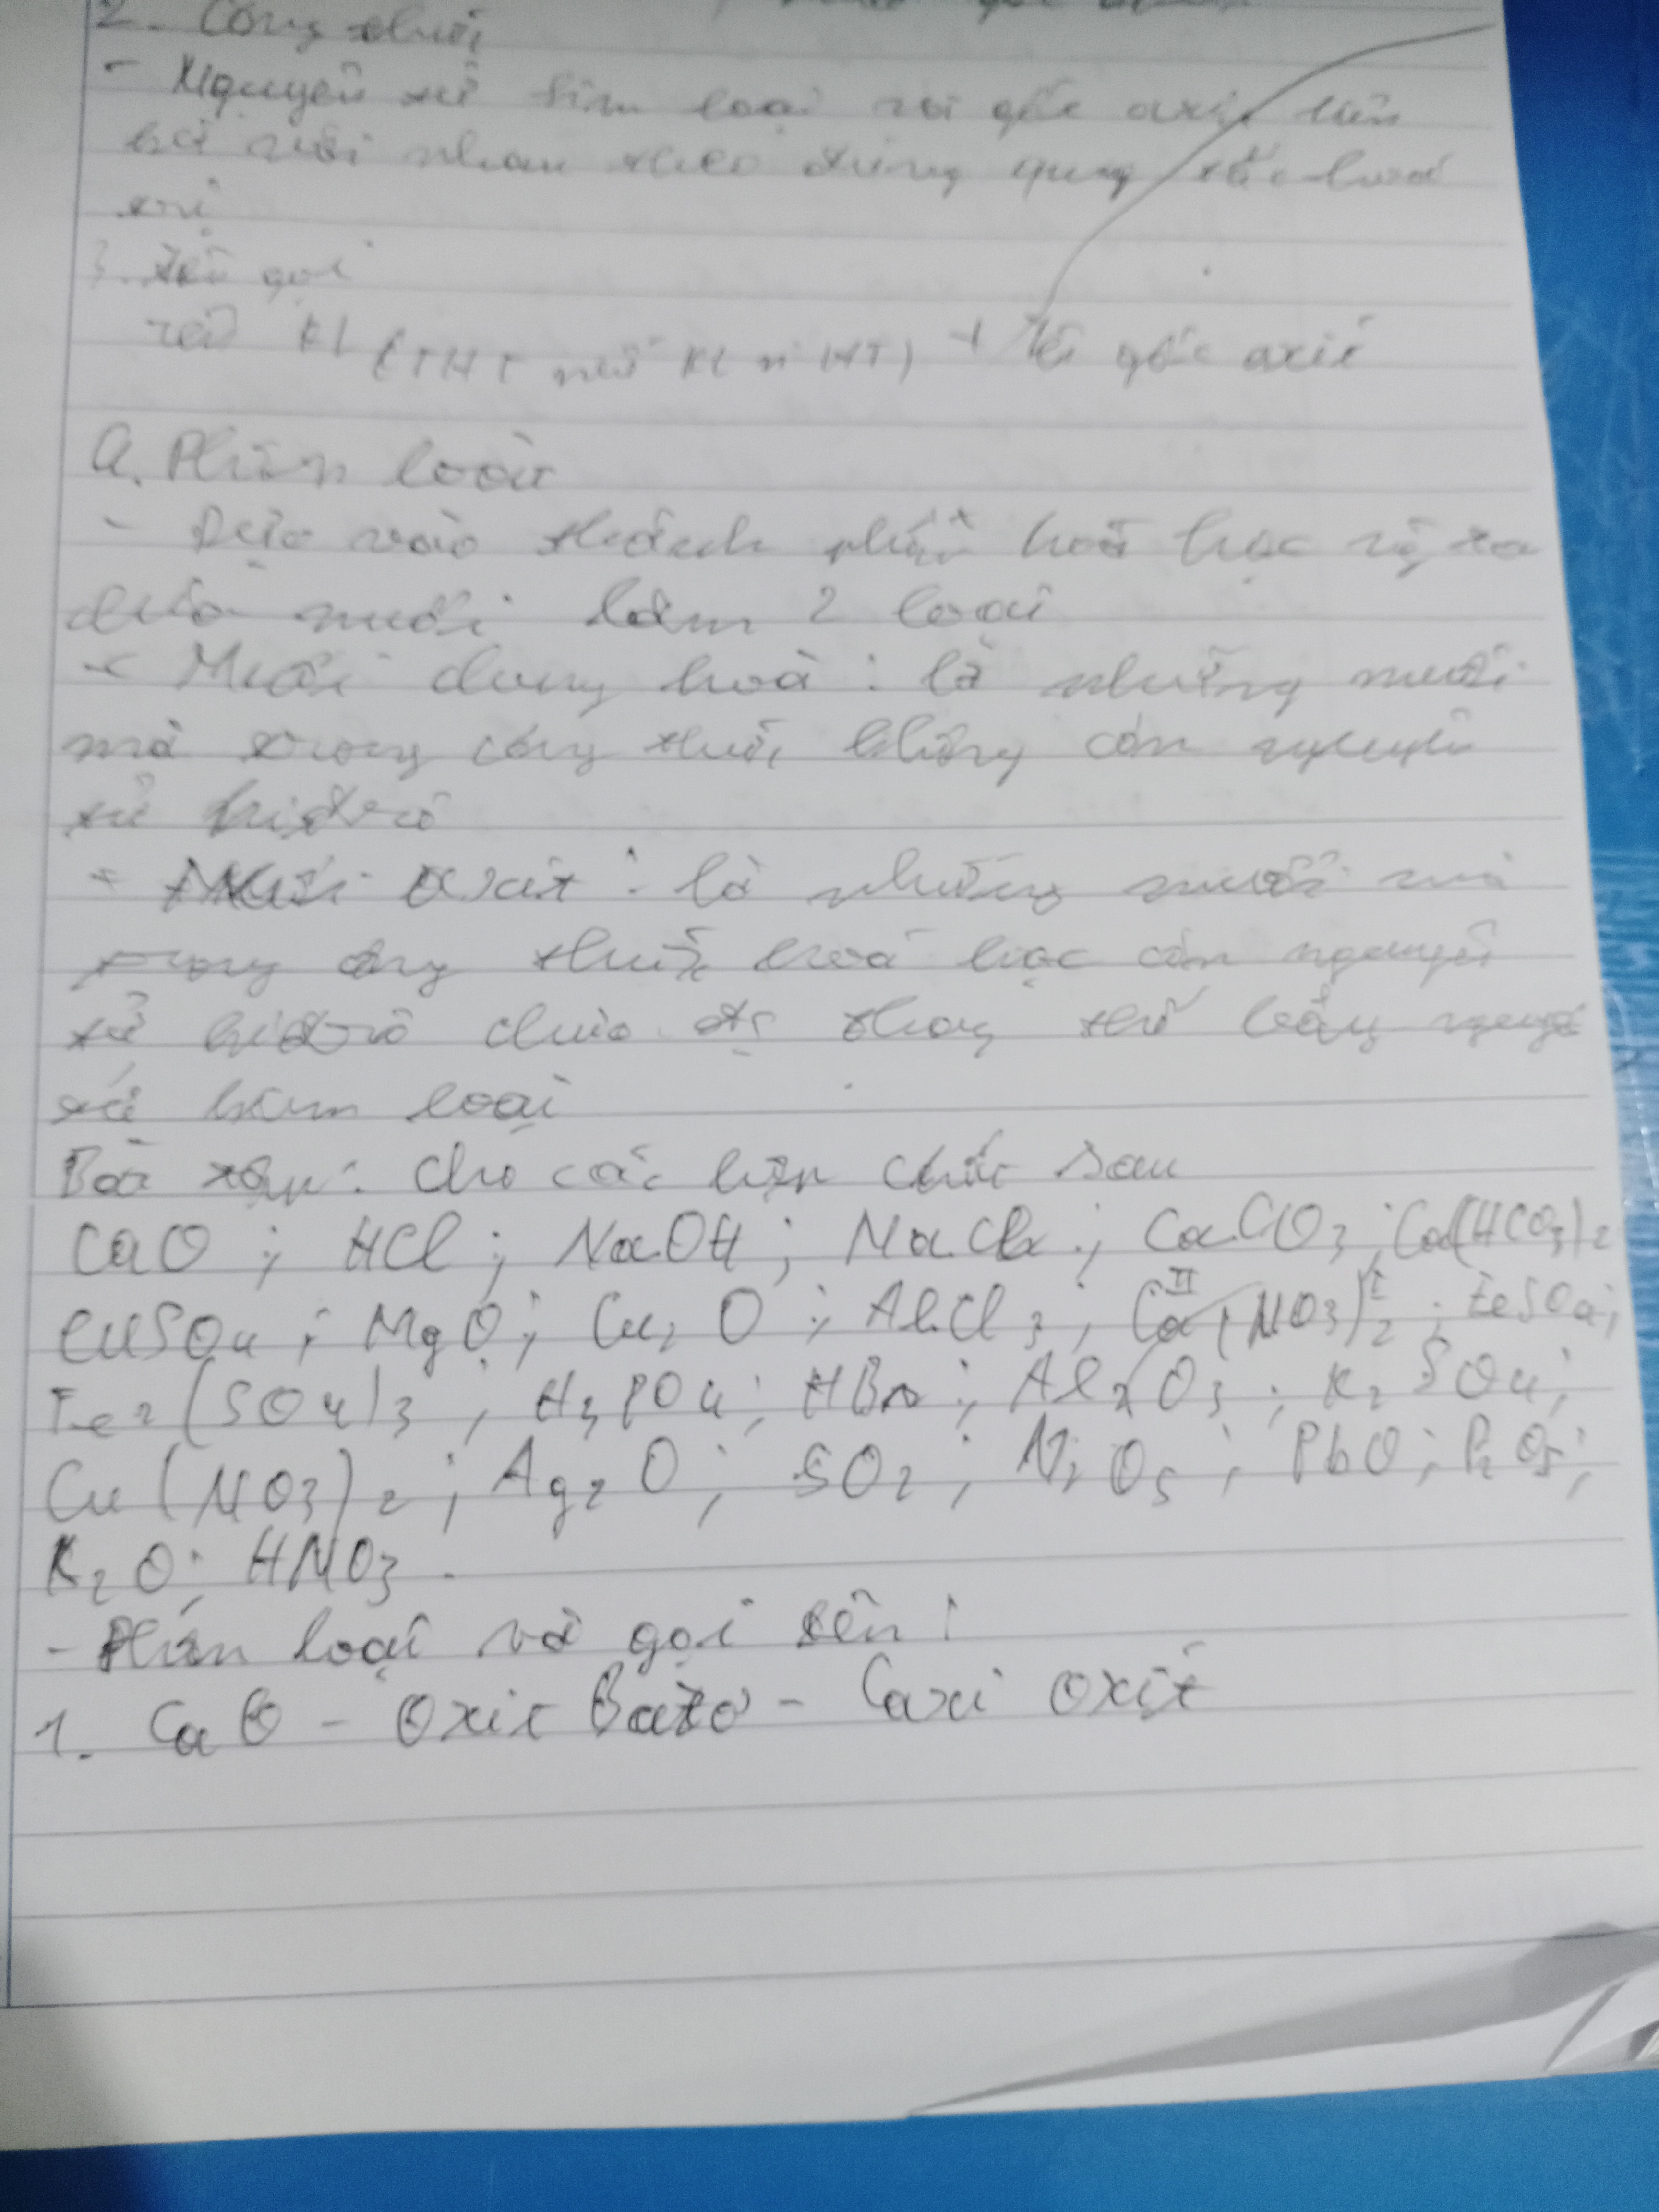 2. Công thức
- Nguyên tử kim loại với gốc axit liên
kết với nhau theo đúng quy tắc hoá
trị
3. Tên gọi
Tên Kl (THT nếu Kl n HT) + Tên gốc axit
a. Phân loại
- Dựa vào thành phần hoá học ng ta
chia muối làm 2 loại
+ Muối dung hoà : là những muối
mà trong công thức không còn nguyên
tử hiđrô
+ Muối axit : là những muối mà
trong công thức hoá học còn nguyên
tử hiđrô chưa đc thay thế bằng nguyên
tử kim loại
Bài tập : Cho các hợp chất sau
CaO ; HCl ; NaOH ; NaCl ; CaCO3 ; Ca(HCO3)2
CuSO4 ; MgO ; Cu2O ; AlCl3 ; Ca(NO3)2 ; FeSO4 ;
Fe2(SO4)3 ; H3PO4 ; HBr ; Al2O3 ; K2SO4 ;
Cu(NO3)2 ; Ag2O ; SO2 ; N2O5 ; PbO ; P2O5 ;
K2O ; HNO3 .
- Phân loại và gọi tên :
1. CaO - Oxit Bazơ - Canxi oxit